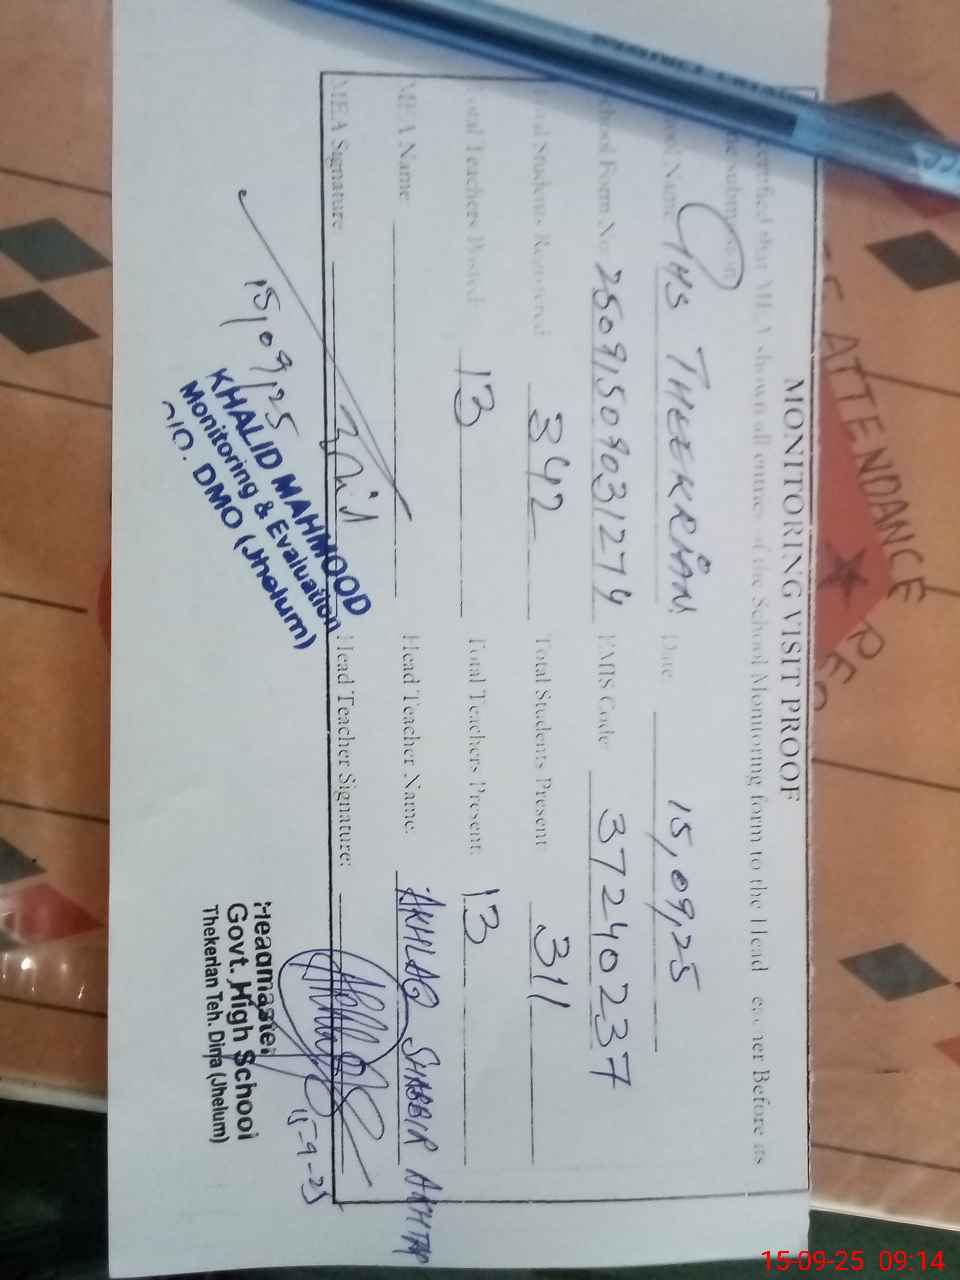 MONITORING VISIT PROOF
certified that MEA shown all entries of the School Monitoring form to the Head Teacher Before its
submission
School Name GHS THEEKRIAN Date: 15,09,25
School Form No: 25091509031274 EMIS Code: 37240237
Total Students Registered 342 Total Students Present 311
Total Teachers Posted: 13 Total Teachers Present: 13
MEA Name Head Teacher Name: AKHLAQ SHABBIR AKHTAR
MEA Signature Head Teacher Signature:
15,09,25
KHALID MAHMOOD
Monitoring & Evaluation
O/O. DMO (Jhelum)
15-9-25
Headmaster
Govt. High School
Thekerian Teh. Dina (Jhelum)
ATTENDANCE
15-09-25 09:14